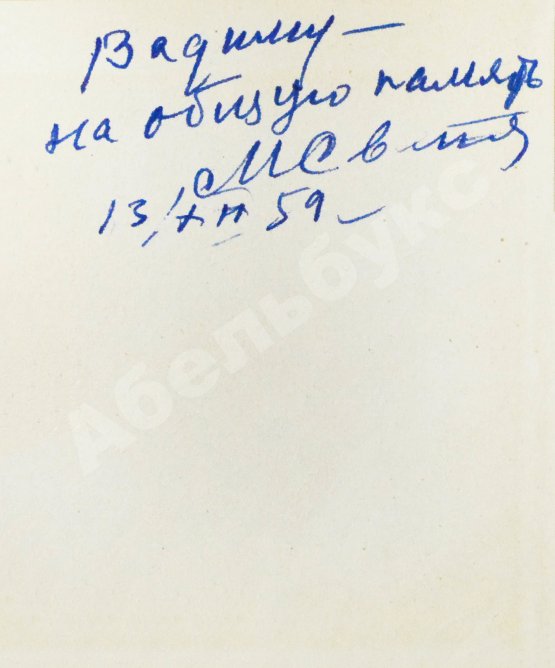 Вадиму —
на общую память
МСветл
13/XII 59 —
Абельбукс